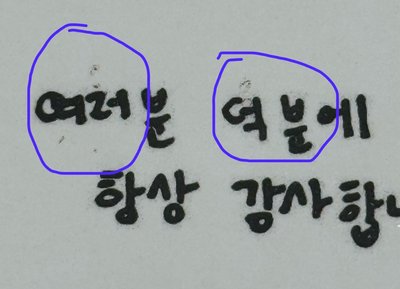 여러분 덕분에
항상 감사합